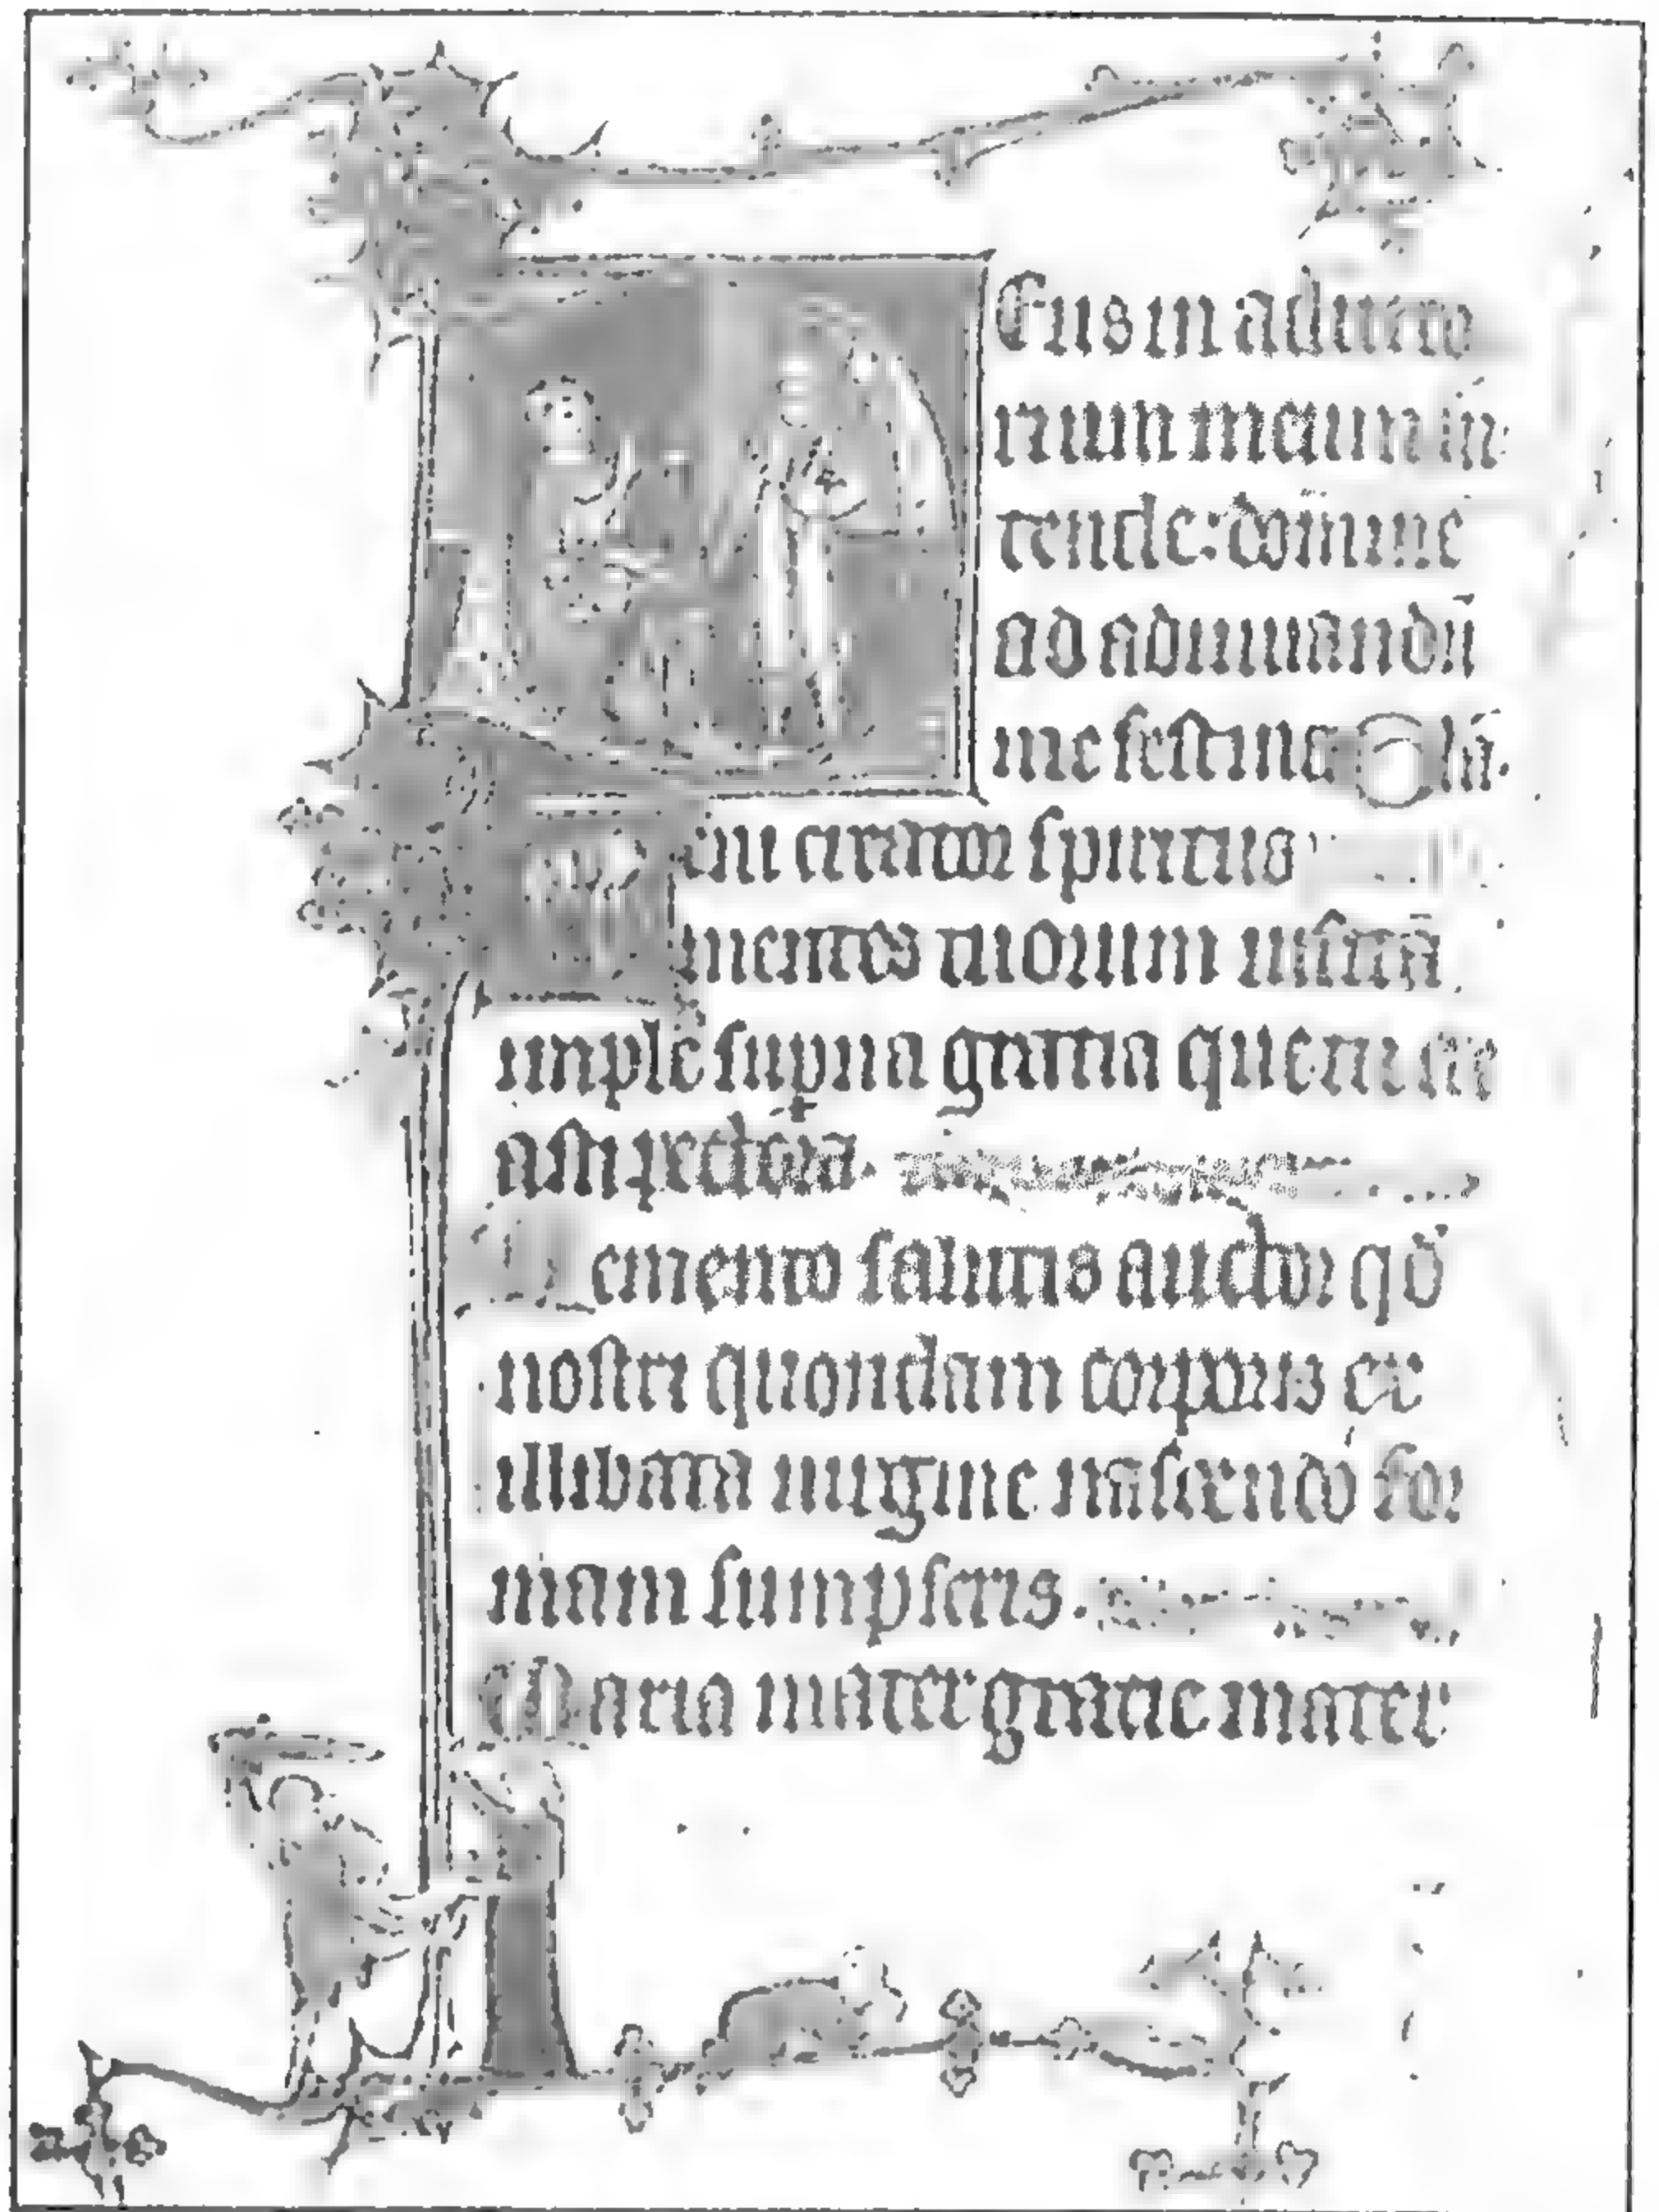 Eus in adiuto
rium meum in
tende: domine
ad adiuuandū
me festina Gl̄a.
eni creator spiritus
mentes tuorum uisita
imple sup̲na gratia que tu cre
asti pectora.
emento salutis auctor qd̄
nostri quondam corporis ex
illibata uirgine nascendo for
mam sumpseris.
Maria mater gratie mater